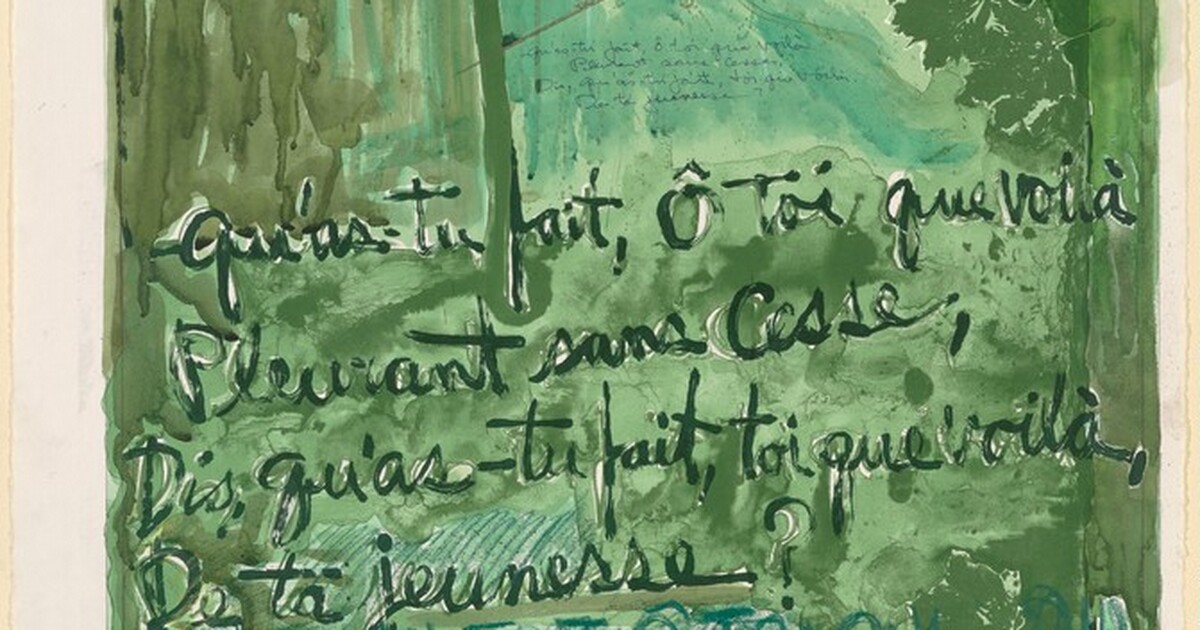 qu'as-tu fait, ô toi que voilà
Pleurant sans cesse,
Dis, qu'as-tu fait, toi que voilà,
De ta jeunesse ?
qu'as-tu fait, Ô Toi que voilà
Pleurant sans Cesse,
Dis, qu'as-tu fait, toi que voilà,
De ta jeunesse ?